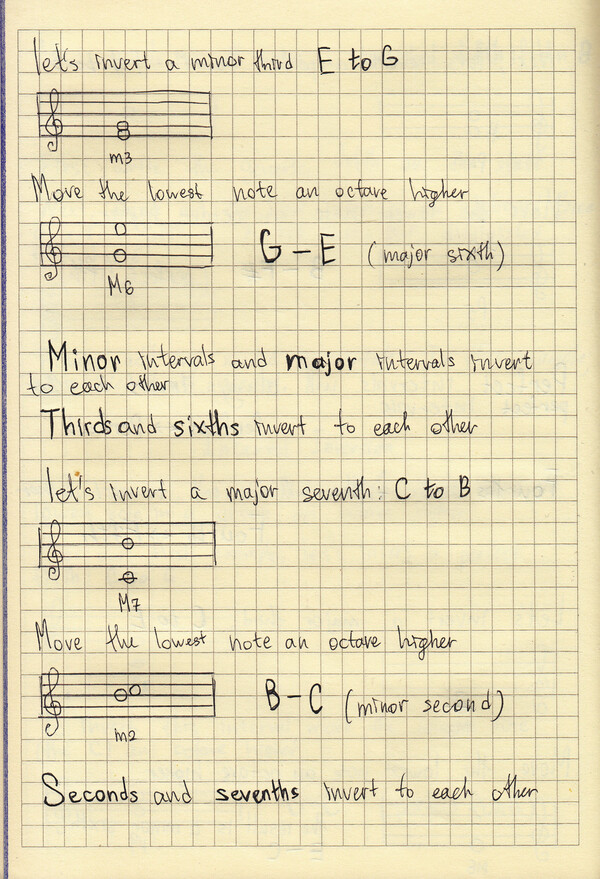 let's invert a minor third E to G
m3
Move the lowest note an octave higher
G – E (major sixth)
M6
Minor intervals and major intervals invert
to each other
Thirds and sixths invert to each other
let's invert a major seventh: C to B
M7
Move the lowest note an octave higher
B – C (minor second)
m2
Seconds and sevenths invert to each other